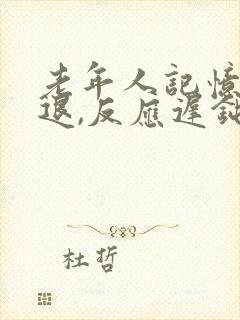 老年人記憶
退,反應遲鈍
杜哲